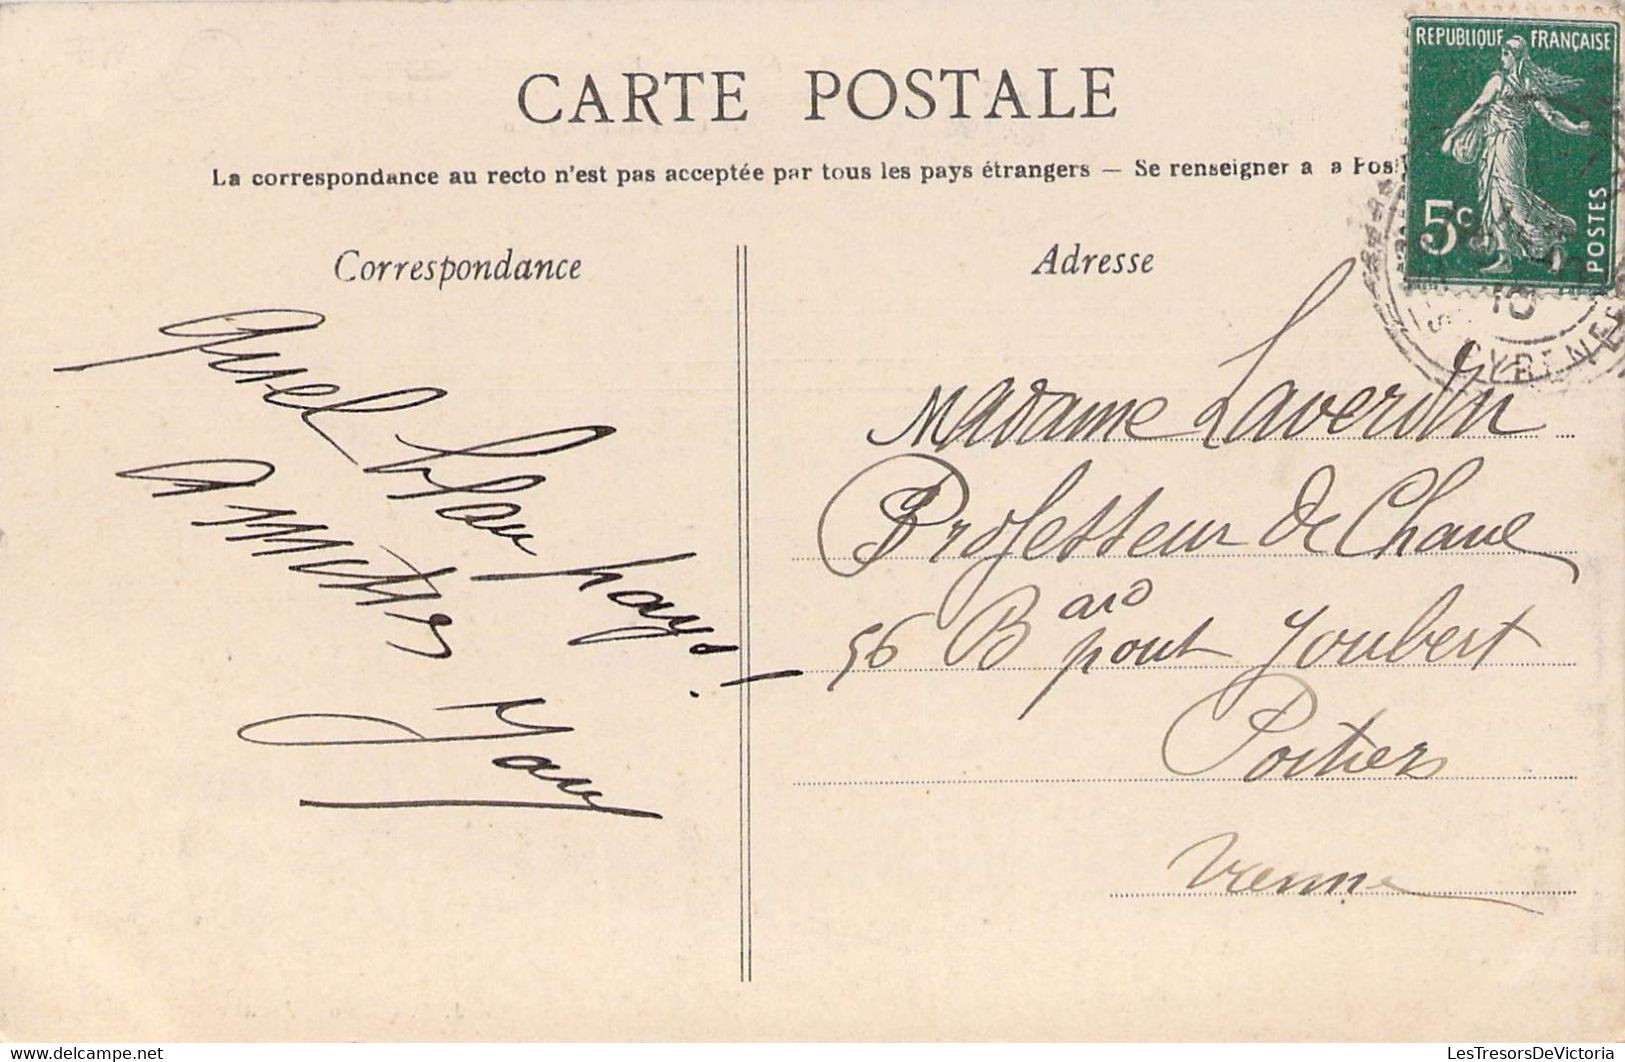 CARTE POSTALE
La correspondance au recto n'est pas acceptée par tous les pays étrangers — Se renseigner a a Pos
REPUBLIQUE FRANÇAISE
5c
POSTES
PYRENEES
10
Correspondance
Quel beau pays!
Amitiés
Adresse
Madame Laverdin
Professeur de Chant
56 Bard pont Joubert
Poitiers
Vienne
Delcampe.net
LesTresorsDeVictoria